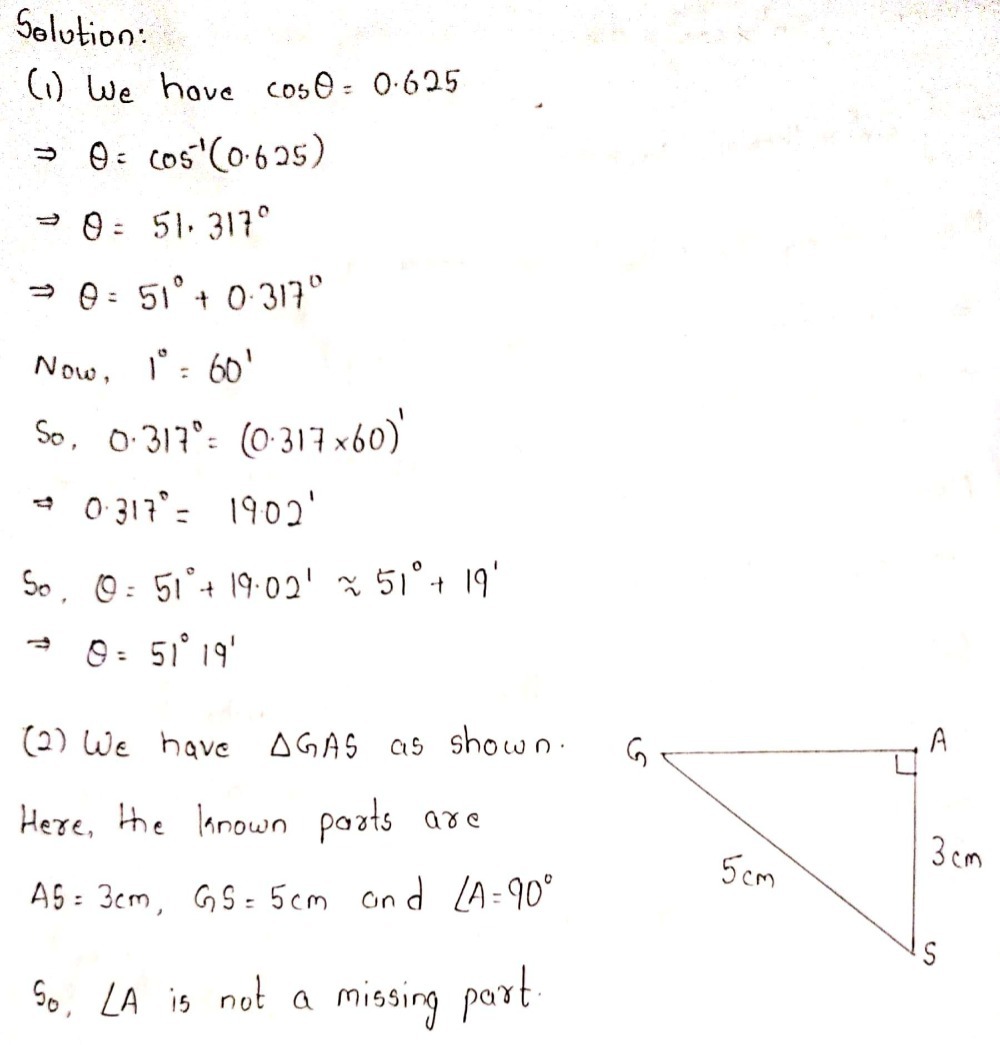 Solution:
(1) We have cosθ = 0.625
⇒ θ = cos⁻¹(0.625)
⇒ θ = 51.317°
⇒ θ = 51° + 0.317°
Now, 1° = 60'
So, 0.317° = (0.317×60)'
⇒ 0.317° = 19.02'
So, θ = 51° + 19.02' ≈ 51° + 19'
⇒ θ = 51° 19'
(2) We have △GAS as shown.
Here, the known parts are
AS = 3cm, GS = 5cm and ∠A = 90°
So, ∠A is not a missing part.
G
A
3 cm
5 cm
S